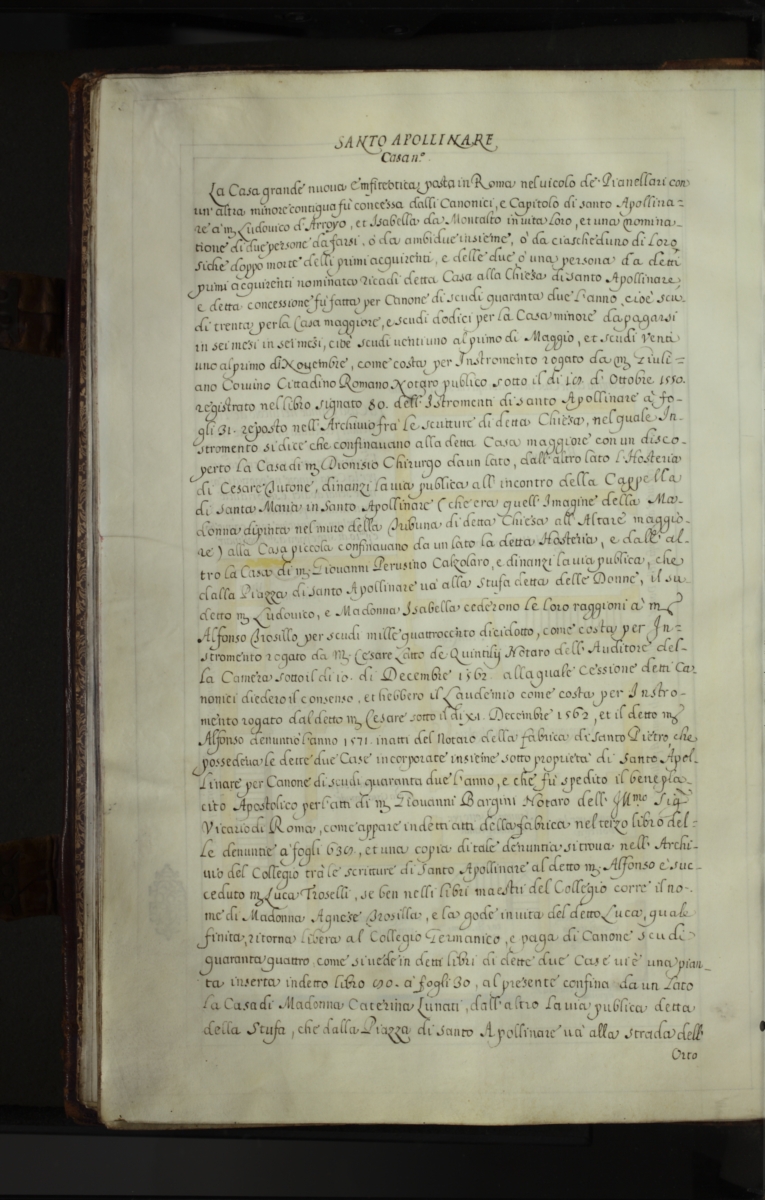 SANTO APOLLINARE
Casa n.º
La Casa grande nuova Emfiteotica posta in Roma nel vicolo de Pianellari con
un'altra minore contigua fù concessa dalli Canonici, e Capitolo di santo Apollina=
re à m. Ludovico d'Arroyo, et Isabella da Montalto in vita loro, et una nomina-
tione di due persone da farsi, ò da ambidue insieme, ò da ciascheduno di loro,
siche doppo morte delli primi acquirenti, e delle due ò una persona da detti
primi acquirenti nominata ricadi detta Casa alla Chiesa di santo Apollinare,
e detta concessione fù fatta per Canone di scudi quaranta due l'anno, cioè scu-
di trenta per la Casa maggiore, e scudi dodici per la Casa minore da pagarsi
in sei mesi in sei mesi, cioè scudi venti uno al primo di Maggio, et scudi venti
uno al primo di Novembre, come costa per Instromento rogato da m. Giuli=
ano Corvino Cittadino Romano Notaro publico sotto il di 19. d'Ottobre 1550.
registrato nel libro signato 80. dell'Istromenti di santo Apollinare à fo-
gli 31. reposto nell'Archivio frà le scritture di detta Chiesa, nel quale In-
stromento si dice che confinavano alla detta Casa maggiore con un disco-
perto la Casa di m. Dionisio Chirurgo da un lato, dall'altro lato l'Hosteria
di Cesare , dinanzi la via publica all'incontro della Cappella
di santa Maria in Santo Apollinare (che era quell'Imagine della Ma-
donna dipinta nel muro della Tribuna di detta Chiesa all'Altare maggio-
re) alla Casa piccola confinavano da un lato la detta Hosteria, e dall'al-
tro la Casa di m. Giovanni Perusino Calzolaro, e dinanzi la via publica, che
dalla Piazza di santo Apollinare và alla Stufa detta delle Donne, il su-
detto m. Ludovico, e Madonna Isabella cederono le loro raggioni à m.
Alfonso Trosillo per scudi mille quattrocento dieidotto, come costa per In=
stromento rogato da M. Cesare Zatto de Quintilij Notaro dell'Auditore del-
la Camera sotto il di 10. di Decembre 1562. alla quale cessione detti Ca-
nonici diedero il consenso, et hebbero il Laudemio come costa per Instro-
mento rogato dal detto m. Cesare sotto il di XI. Decembre 1562, et il detto m.
Alfonso denuntiò l'anno 1571. in atti del Notaro della fabrica di Santo Pietro, che
possedeva le dette due Case incorporate insieme sotto proprietà di Santo Apol-
linare per Canone di scudi quaranta due l'anno, e che fù spedito il benepla-
cito Apostolico per l'atti di m. Giovanni Bargini Notaro dell'Ill.mo Sig.
Vicario di Roma, come appare in detti atti della fabrica nel terzo libro del-
le denuntie à fogli 639, et una copia di tale denuntia si trova nell'Archi-
vio del Collegio trà le scritture di Santo Apollinare al detto m. Alfonso è suc-
ceduto m. Luca Troselli, se ben nelli libri maestri del Collegio corre il no-
me di Madonna Agnese Trosilla, e la gode in vita del detto Luca, quale
finita, ritorna libera al Collegio Germanico, e paga di Canone scudi
quaranta quattro, come si vede in detti libri di dette due Case vi è una pian-
ta inserta in detto libro 90. à fogli 30, al presente confina da un lato
la Casa di Madonna Caterina Lunati, dall'altro la via publica detta
della Stufa, che dalla Piazza di Santo Apollinare và alla strada dell'
Orto